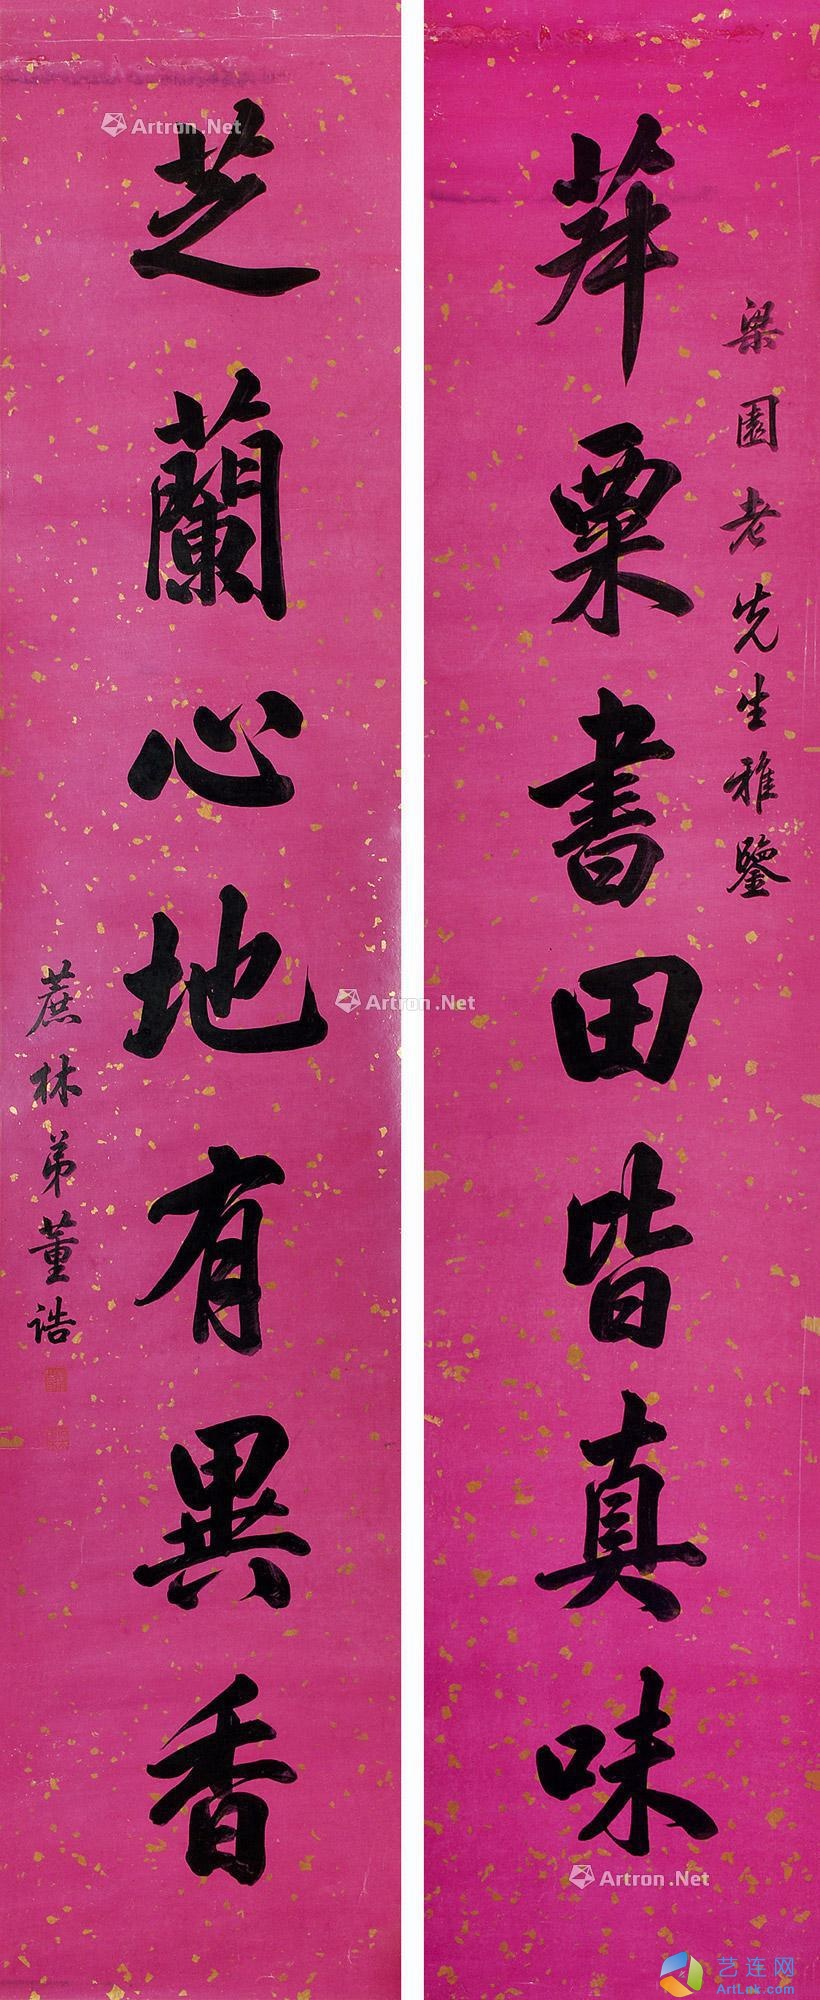 梁園老先生雅鑒
菽粟書田皆真味
芝蘭心地有異香
蔗林弟董誥
Artron.Net
Artron.Net
Artron.Net
艺连网
ArtLnk.com